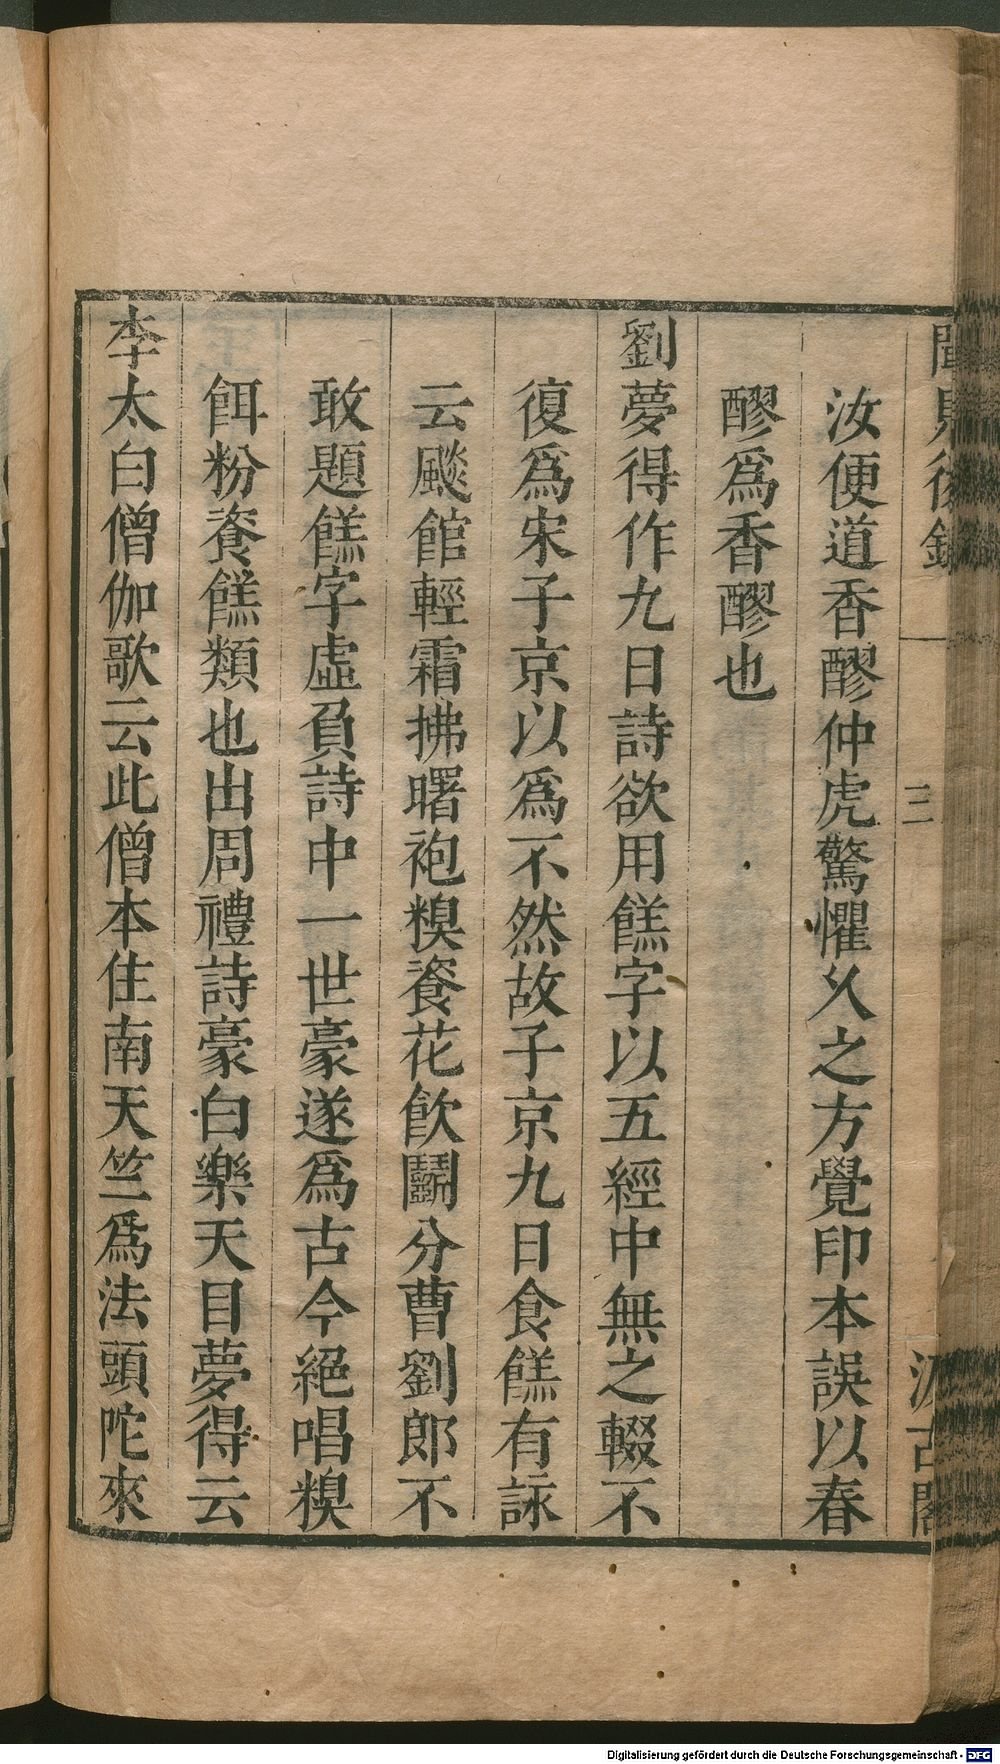 聞見後錄
三
汲古閣
汝便道香醪仲虎驚懼久之方覺印本誤以春
醪爲香醪也
劉夢得作九日詩欲用餻字以五經中無之輟不
復爲宋子京以爲不然故子京九日食餻有詠
云飈館輕霜拂曙袍糗餈花飲鬭分曹劉郎不
敢題餻字虛負詩中一世豪遂爲古今絕唱糗
餌粉餈餻類也出周禮詩豪白樂天目夢得云
李太白僧伽歌云此僧本住南天竺爲法頭陀來
Digitalisierung gefördert durch die Deutsche Forschungsgemeinschaft - DFG